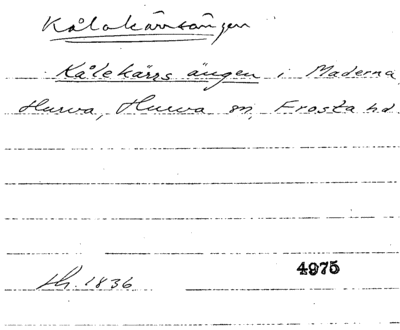 Kålakärrsängen
Kålekärrs ängen i Maderna
Hurva, Hurva sn, Frosta hd.
lh. 1836 4975